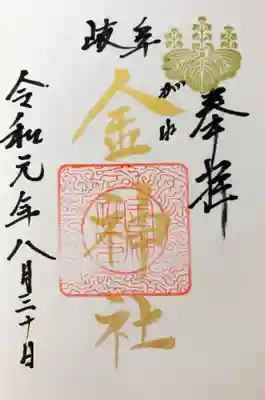 奉拝
岐阜
金神社
がね
令和元年八月三十日